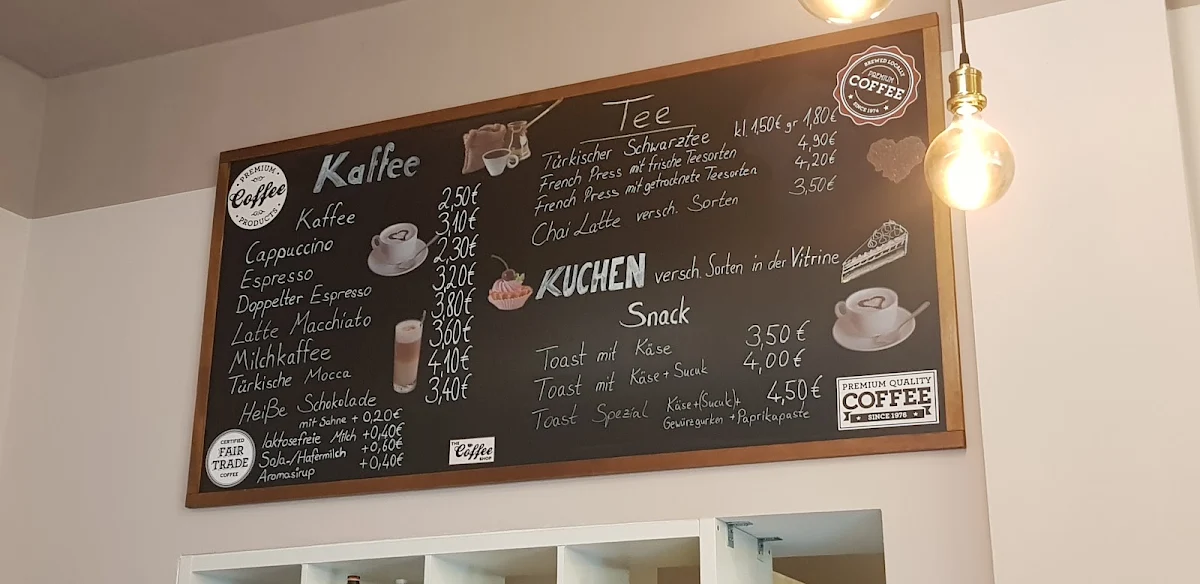 PREMIUM
Coffee
PRODUCTS
Kaffee
Kaffee 2,50€
Cappuccino 3,10€
Espresso 2,30€
Doppelter Espresso 3,20€
Latte Macchiato 3,80€
Milchkaffee 3,60€
Türkische Mocca 4,10€
Heiße Schokolade 3,40€
mit Sahne + 0,20€
laktosefreie Milch +0,40€
Soja-/Hafermilch +0,60€
Aromasirup +0,40€
CERTIFIED
FAIR
TRADE
COFFEE
THE
Coffee
SHOP
Tee
Türkischer Schwarztee kl 1,50€ gr 1,80€
French Press mit frische Teesorten 4,90€
French Press mit getrocknete Teesorten 4,20€
Chai Latte versch. Sorten 3,50€
BREWED LOCALLY
PREMIUM
COFFEE
SINCE 1974
KUCHEN versch. Sorten in der Vitrine
Snack
Toast mit Käse 3,50€
Toast mit Käse + Sucuk 4,00€
Toast Spezial Käse+(Sucuk)+ 4,50€
Gewürzgurken + Paprikapaste
PREMIUM QUALITY
COFFEE
SINCE 1976